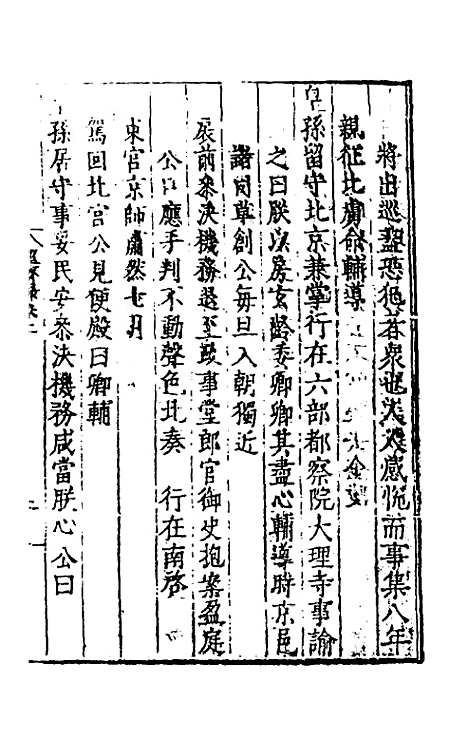 將出巡盜恐犯者衆也法人感悅而事集八年
親征北虜命輔導
皇孫留守北京兼掌行在六部都察院大理寺事諭
之曰朕以房玄齡委卿卿其盡心輔導時京邑
諸司草創公每旦入朝獨近
扆前參決機務退至政事堂郎官御史抱案盈庭
公口應手判不動聲色北奏 行在南啓
東宮京師肅然七月
駕回北官公見便殿曰卿輔
孫居守事妥民安參決機務咸當朕心公曰